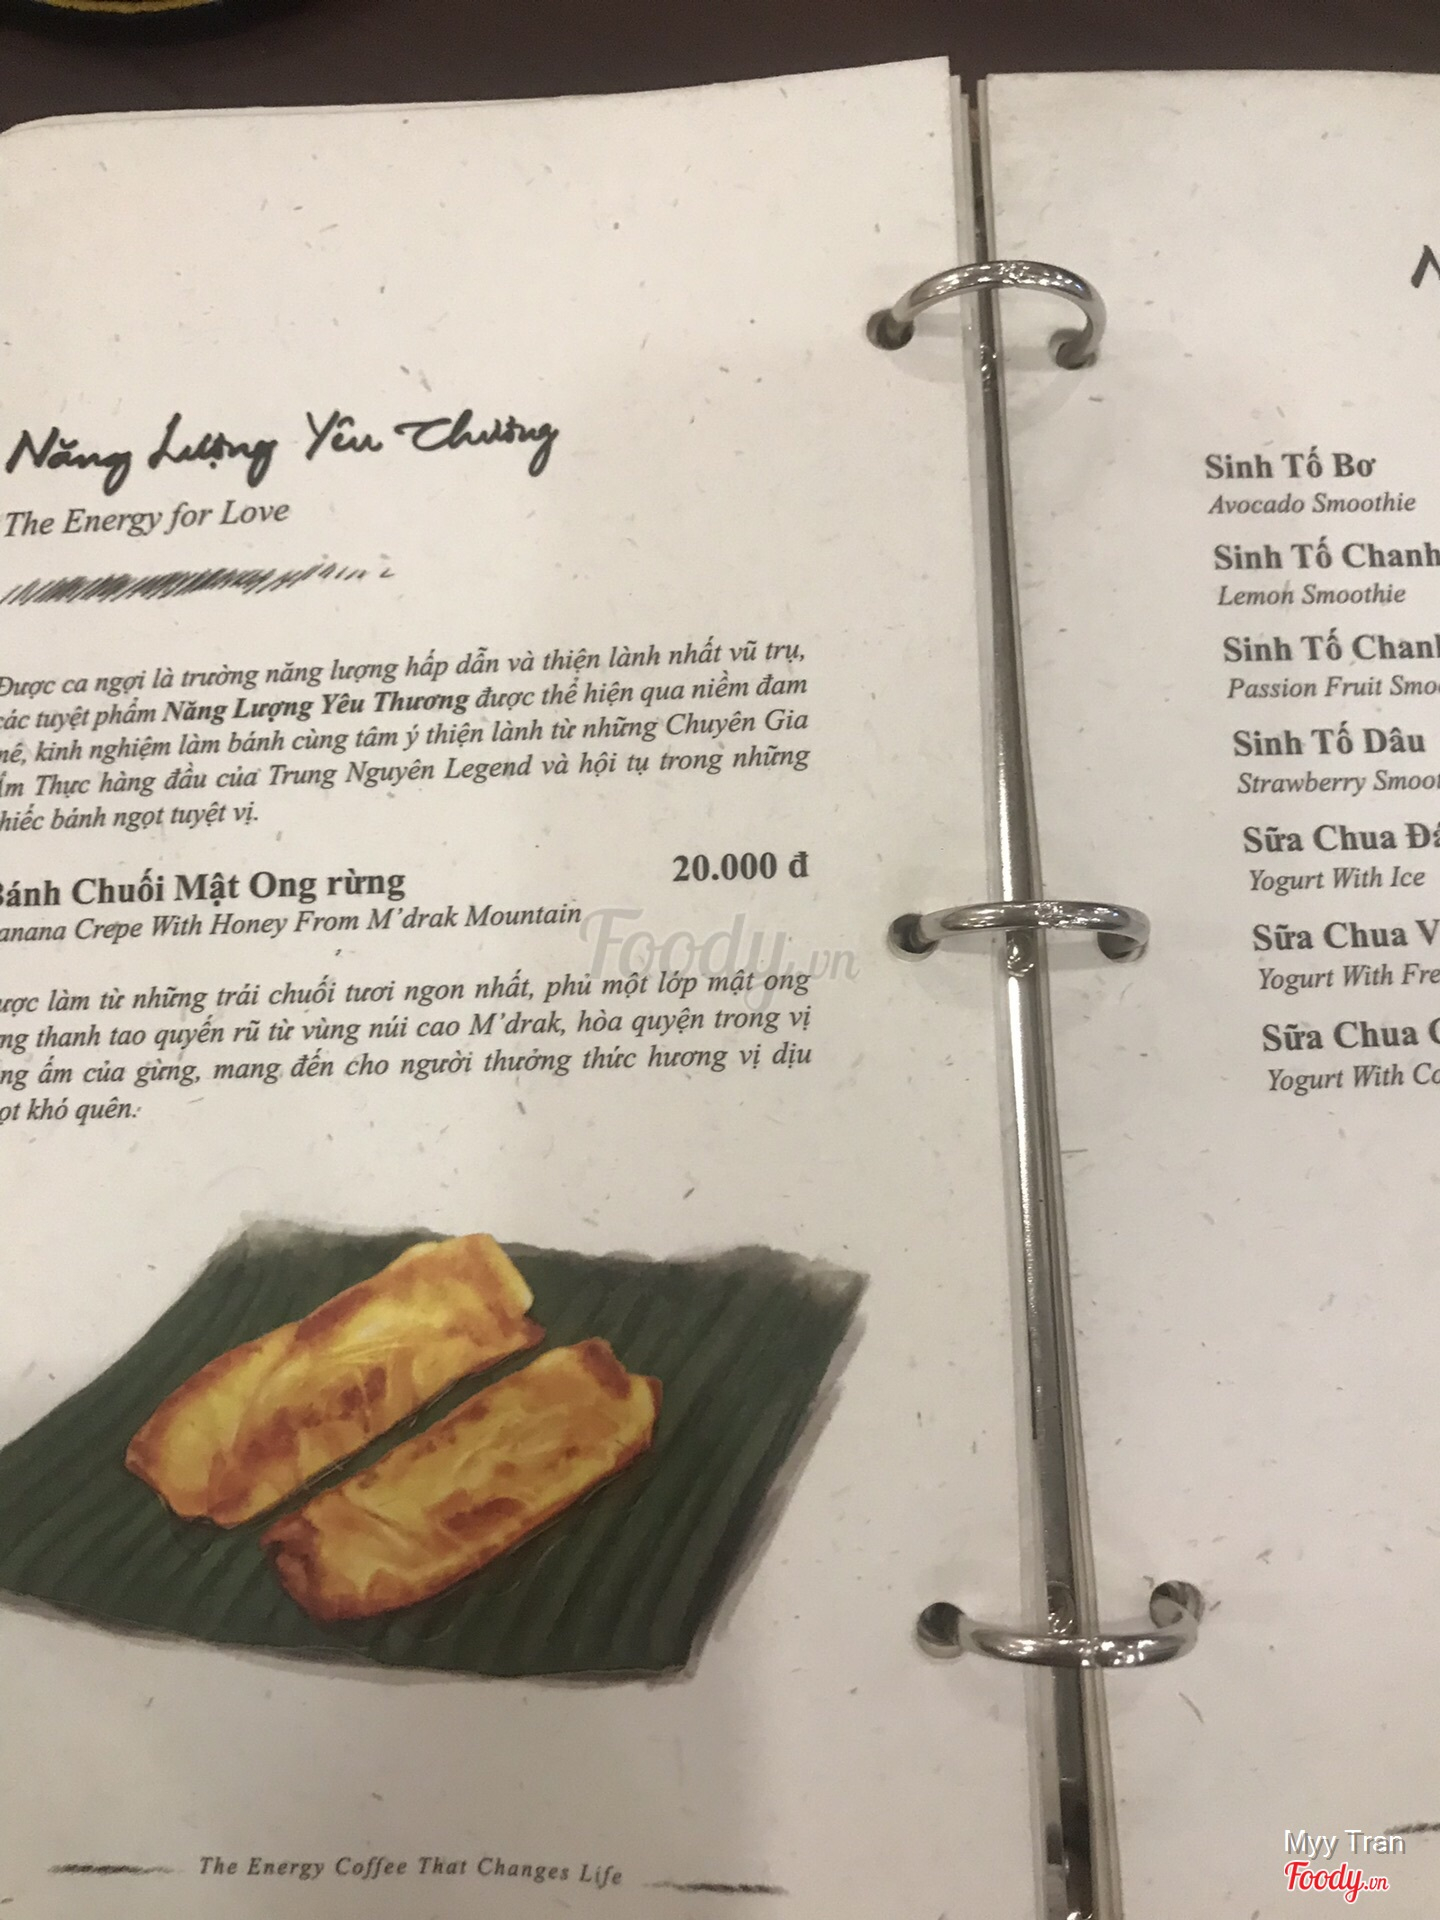 Năng Lượng Yêu Thương
The Energy for Love
Được ca ngợi là trường năng lượng hấp dẫn và thiện lành nhất vũ trụ,
các tuyệt phẩm Năng Lượng Yêu Thương được thể hiện qua niềm đam
mê, kinh nghiệm làm bánh cùng tâm ý thiện lành từ những Chuyên Gia
Ẩm Thực hàng đầu của Trung Nguyên Legend và hội tụ trong những
chiếc bánh ngọt tuyệt vị.
Bánh Chuối Mật Ong rừng 20.000 đ
anana Crepe With Honey From M'drak Mountain
ược làm từ những trái chuối tươi ngon nhất, phủ một lớp mật ong
ng thanh tao quyến rũ từ vùng núi cao M'drak, hòa quyện trong vị
ng ấm của gừng, mang đến cho người thưởng thức hương vị dịu
ọt khó quên.
The Energy Coffee That Changes Life
N
Sinh Tố Bơ
Avocado Smoothie
Sinh Tố Chanh
Lemon Smoothie
Sinh Tố Chanh
Passion Fruit Smoo
Sinh Tố Dâu
Strawberry Smoot
Sữa Chua Đá
Yogurt With Ice
Sữa Chua V
Yogurt With Fre
Sữa Chua C
Yogurt With Co
Foody.vn
Myy Tran
Foody.vn